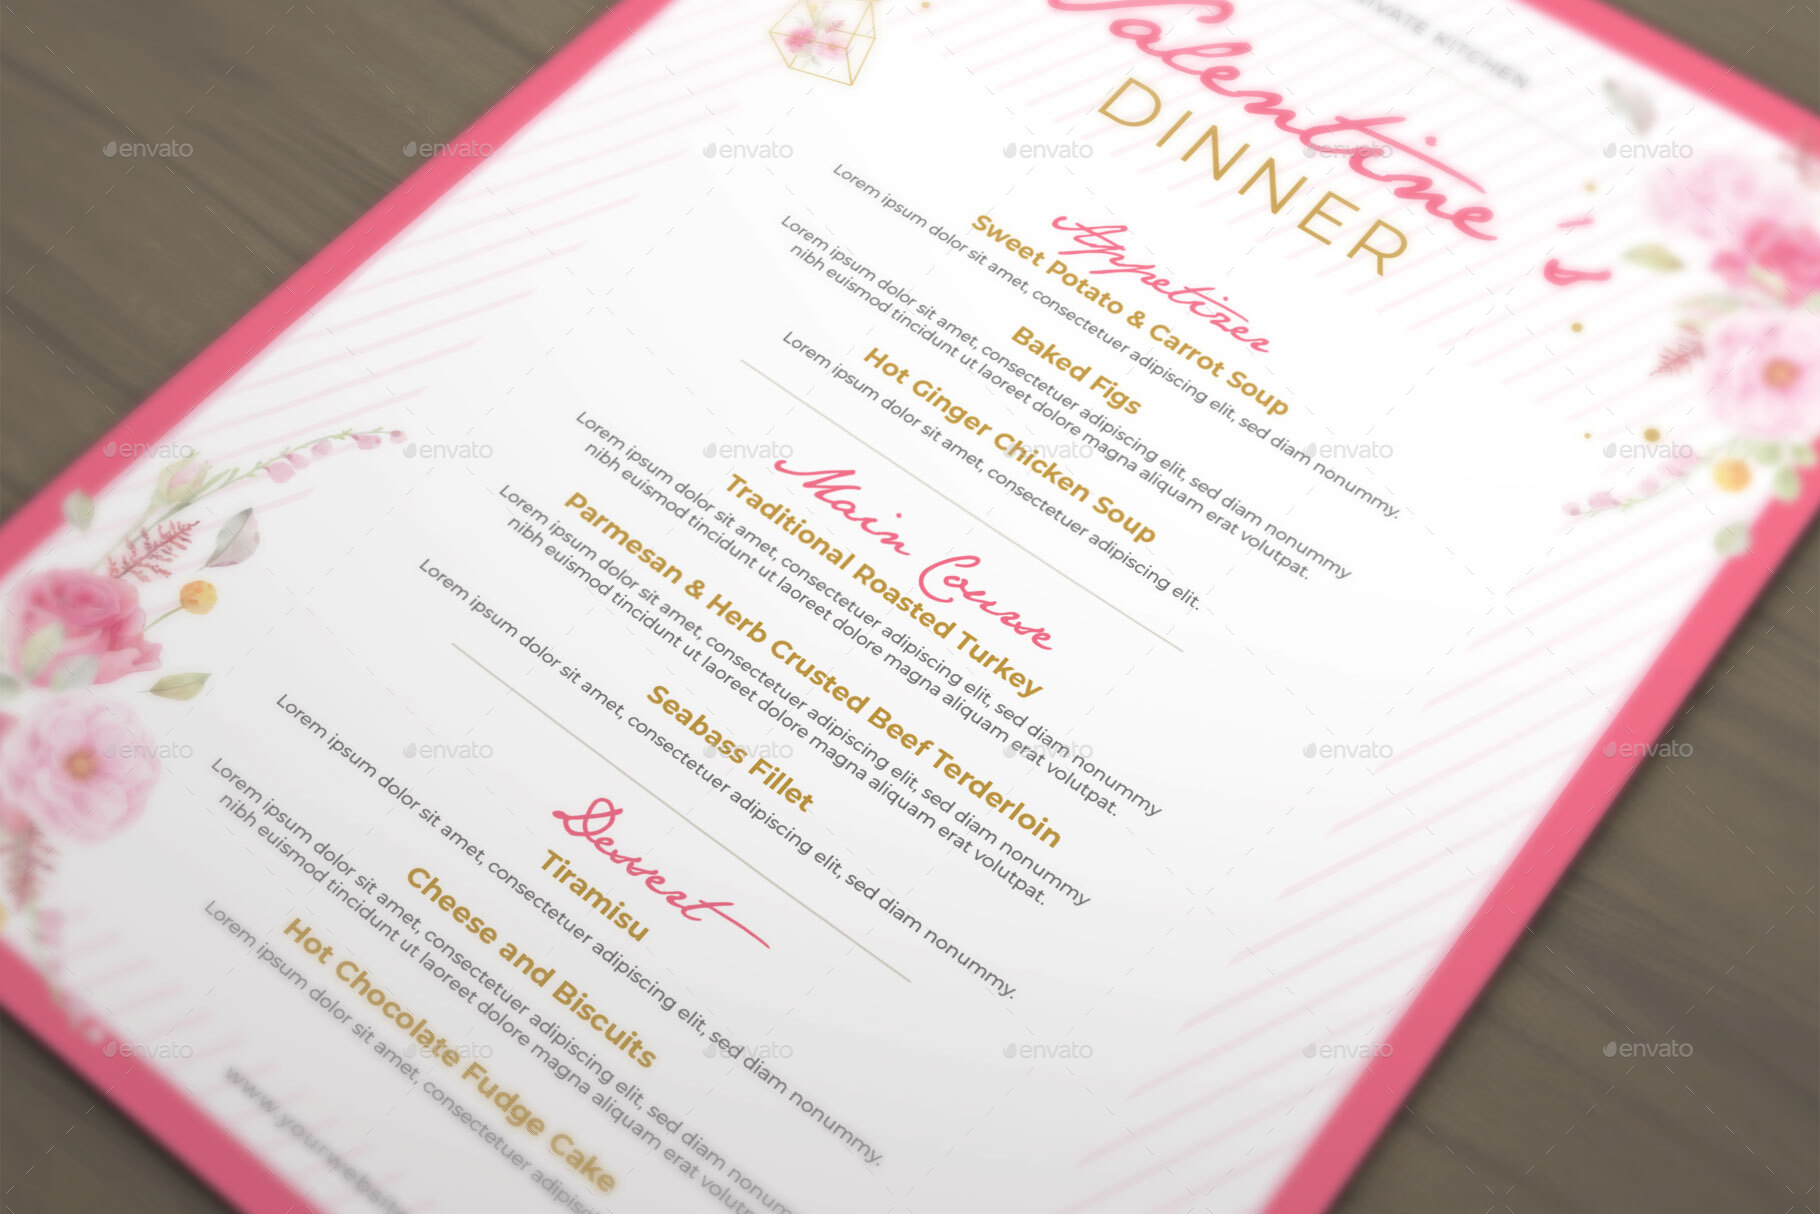 PRIVATE KITCHEN
Valentine's
DINNER
Appetizer
Sweet Potato & Carrot Soup
Lorem ipsum dolor sit amet, consectetuer adipiscing elit, sed diam nonummy.
Baked Figs
Lorem ipsum dolor sit amet, consectetuer adipiscing elit, sed diam nonummy
nibh euismod tincidunt ut laoreet dolore magna aliquam erat volutpat.
Hot Ginger Chicken Soup
Lorem ipsum dolor sit amet, consectetuer adipiscing elit.
Main Course
Traditional Roasted Turkey
Lorem ipsum dolor sit amet, consectetuer adipiscing elit, sed diam nonummy
nibh euismod tincidunt ut laoreet dolore magna aliquam erat volutpat.
Parmesan & Herb Crusted Beef Terderloin
Lorem ipsum dolor sit amet, consectetuer adipiscing elit, sed diam nonummy
nibh euismod tincidunt ut laoreet dolore magna aliquam erat volutpat.
Seabass Fillet
Lorem ipsum dolor sit amet, consectetuer adipiscing elit, sed diam nonummy.
Dessert
Tiramisu
Lorem ipsum dolor sit amet, consectetuer adipiscing elit, sed diam nonummy.
Cheese and Biscuits
Lorem ipsum dolor sit amet, consectetuer adipiscing elit, sed diam nonummy
nibh euismod tincidunt ut laoreet dolore magna aliquam erat volutp
Hot Chocolate Fudge Cake
Lorem ipsum dolor sit amet, consectetuer adipis
www.yourwebsite
envato